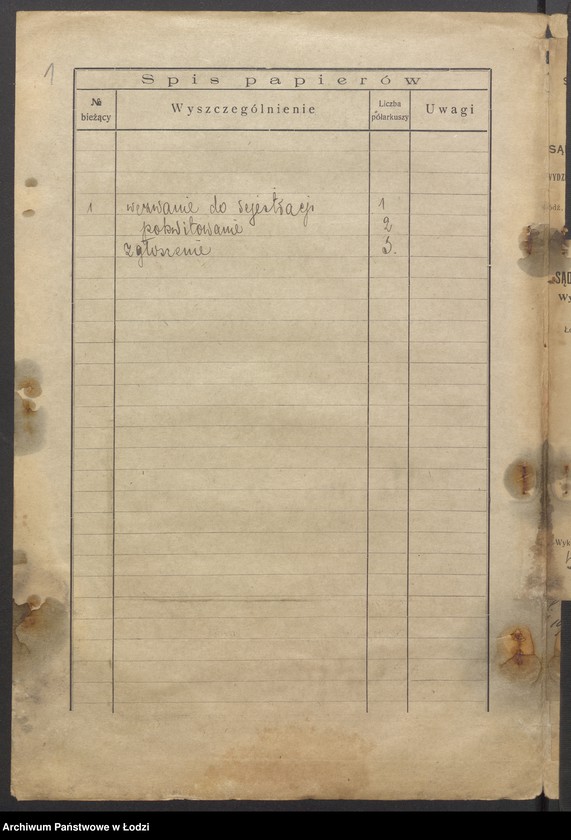 1
Spis papierów
№ bieżący
Wyszczególnienie
Liczba półarkuszy
Uwagi
1 wezwanie do rejestracji 1
pokwitowanie 2
zgłoszenie 3.
SĄD
Wy
Archiwum Państwowe w Łodzi